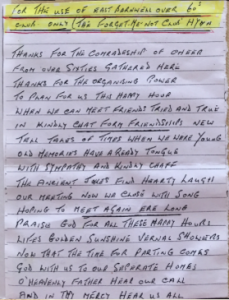 FOR THE USE OF EAST BARNESS OVER 60s
CLUB ONLY (THE FORGET-ME-NOT CLUB HYMN
THANKS FOR THE COMRADESHIP OF CHEER
FROM OVER SIXTIES GATHERED HERE
THANKS FOR THE ORGANISING POWER
TO PLAN FOR US THIS HAPPY HOUR
WHEN WE CAN MEET FRIENDS TRIED AND TRUE
IN KINDLY CHAT FORM FRIENDSHIPS NEW
TELL TALES OF TIMES WHEN WE WERE YOUNG
OLD MEMORIES HAVE A READY TONGUE
WITH SYMPATHY AND KINDLY CHAFF
THE ANCIENT JOKES FIND HEARTY LAUGH
OUR MEETING NOW WE CLOSE WITH SONG
HOPING TO MEET AGAIN ERE LONG
PRAISE GOD FOR ALL THESE HAPPY HOURS
LIFES GOLDEN SUNSHINE VERNAL SHOWERS
NOW THAT THE TIME FOR PARTING COMES
GOD WITH US TO OUR SEPARATE HOMES
O HEAVENLY FATHER HEAR OUR CALL
AND IN THY MERCY HEAR US ALL